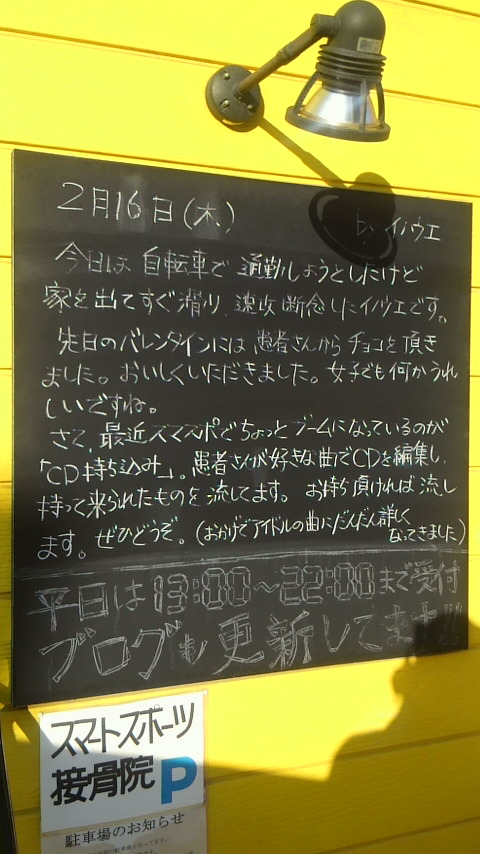 2月16日(木)
by イノウエ
今日は 自転車で 通勤しようとしたけど
家を出てすぐ滑り、速攻断念したイノウエです。
先日のバレンタインには 患者さんから チョコを頂き
ました。おいしくいただきました。女子でも何かうれ
しいですね。
さて、最近スマスポでちょっとブームになっているのが
「CD持ち込み」。患者さんが好きな曲でCDを編集し、
持って来られたものを流してます。お持ち頂ければ流し
ます。ぜひどうぞ。(おかげでアイドルの曲にだんだん詳しく
なってきました)
平日は13:00~22:00まで受付
ブログも更新してます!!
スマートスポーツ
接骨院 P
駐車場のお知らせ